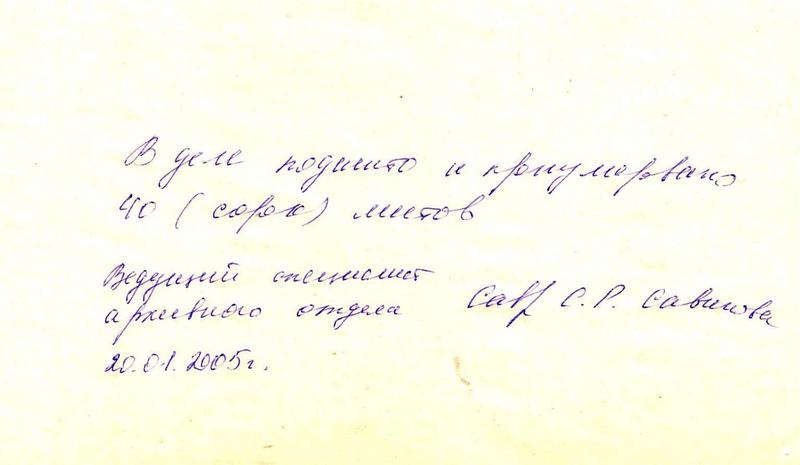 В деле подшито и пронумеровано
40 (сорок) листов
Ведущий специалист
архивного отдела Савf С.Р. Савинова
20.01.2005г.